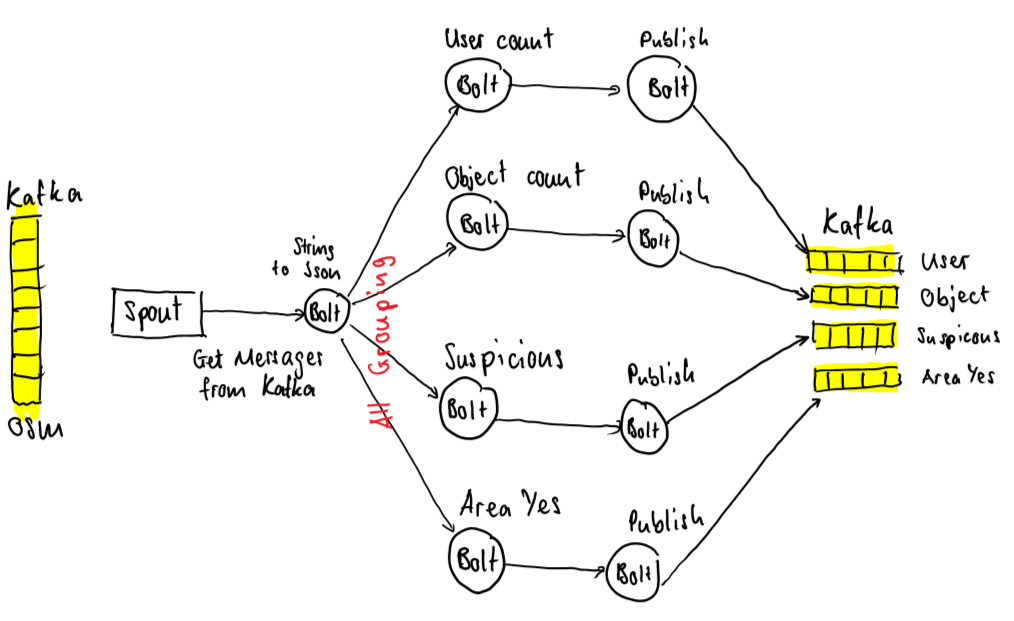 Kafka
OSM
Spout
Get Messages
from Kafka
String
to Json
Bolt
All Grouping
User count
Bolt
Publish
Bolt
Object count
Bolt
Publish
Bolt
Suspicious
Bolt
Publish
Bolt
Area Yes
Bolt
Publish
Bolt
Kafka
User
Object
Suspicous
Area Yes